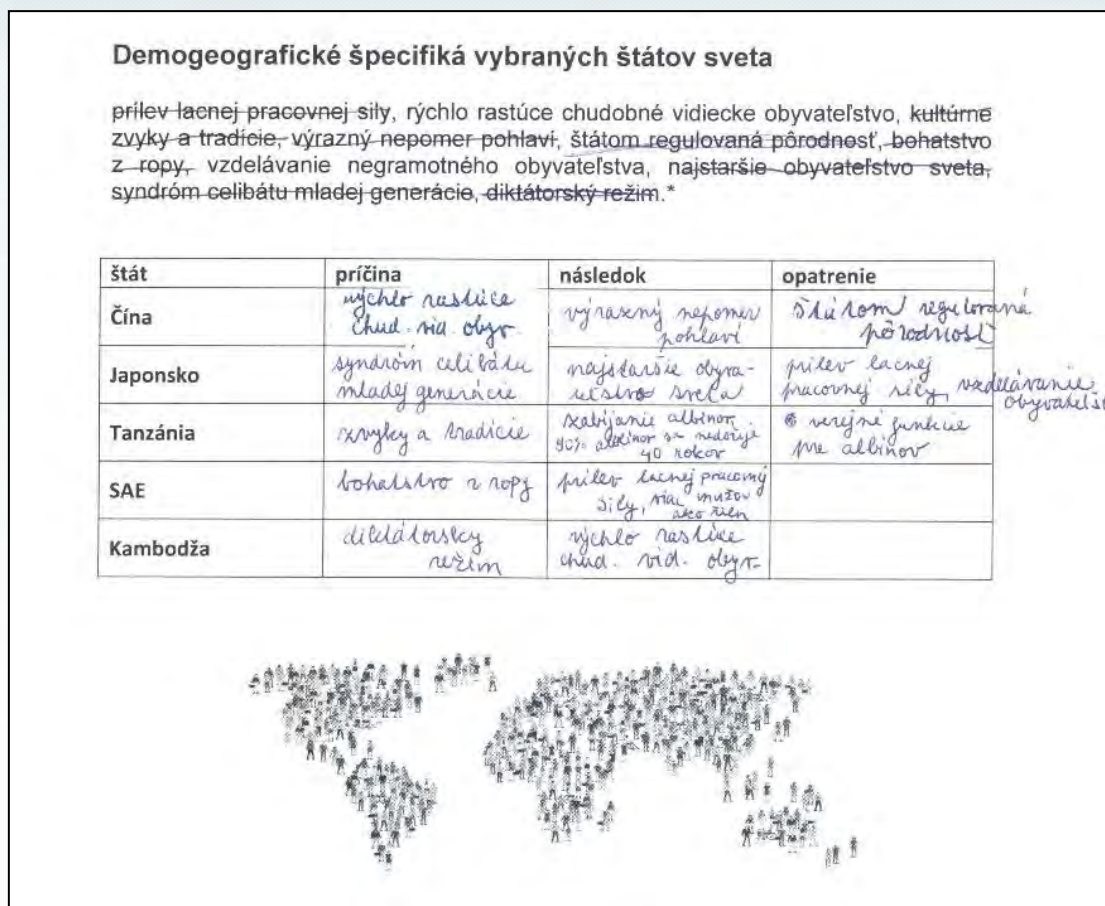 Demogeografické špecifiká vybraných štátov sveta
prílev lacnej pracovnej sily, rýchlo rastúce chudobné vidiecke obyvateľstvo, kultúrne
zvyky a tradície, výrazný nepomer pohlaví, štátom regulovaná pôrodnosť, bohatstvo
z ropy, vzdelávanie negramotného obyvateľstva, najstaršie obyvateľstvo sveta,
syndróm celibátu mladej generácie, diktátorský režim.*
štát príčina následok opatrenie
Čína
rýchlo rastúce
chud. vid. obyv.
výrazný nepomer
pohlaví
štátom regulovaná
pôrodnosť
Japonsko
syndróm celibátu
mladej generácie
najstaršie obyva-
teľstvo sveta
prílev lacnej
pracovnej sily, vzdelávanie
obyvateľst
Tanzánia
zvyky a tradície
zabíjanie albínov
90% albínov sa nedožije
40 rokov
verejné funkcie
pre albínov
SAE
bohatstvo z ropy
prílev lacnej pracovnej
sily, viac mužov
ako žien
Kambodža
diktátorsky
režim
rýchlo rastúce
chud. vid. obyv.